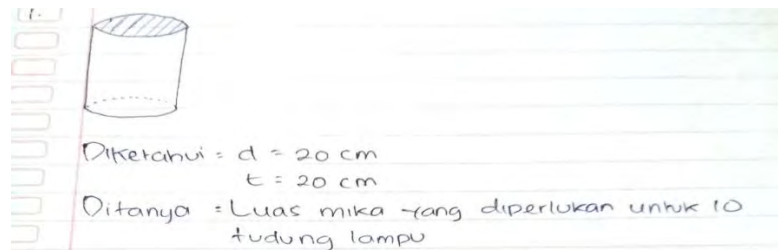 1.
Diketahui = d = 20 cm
t = 20 cm
Ditanya = Luas mika yang diperlukan untuk 10
tudung lampu